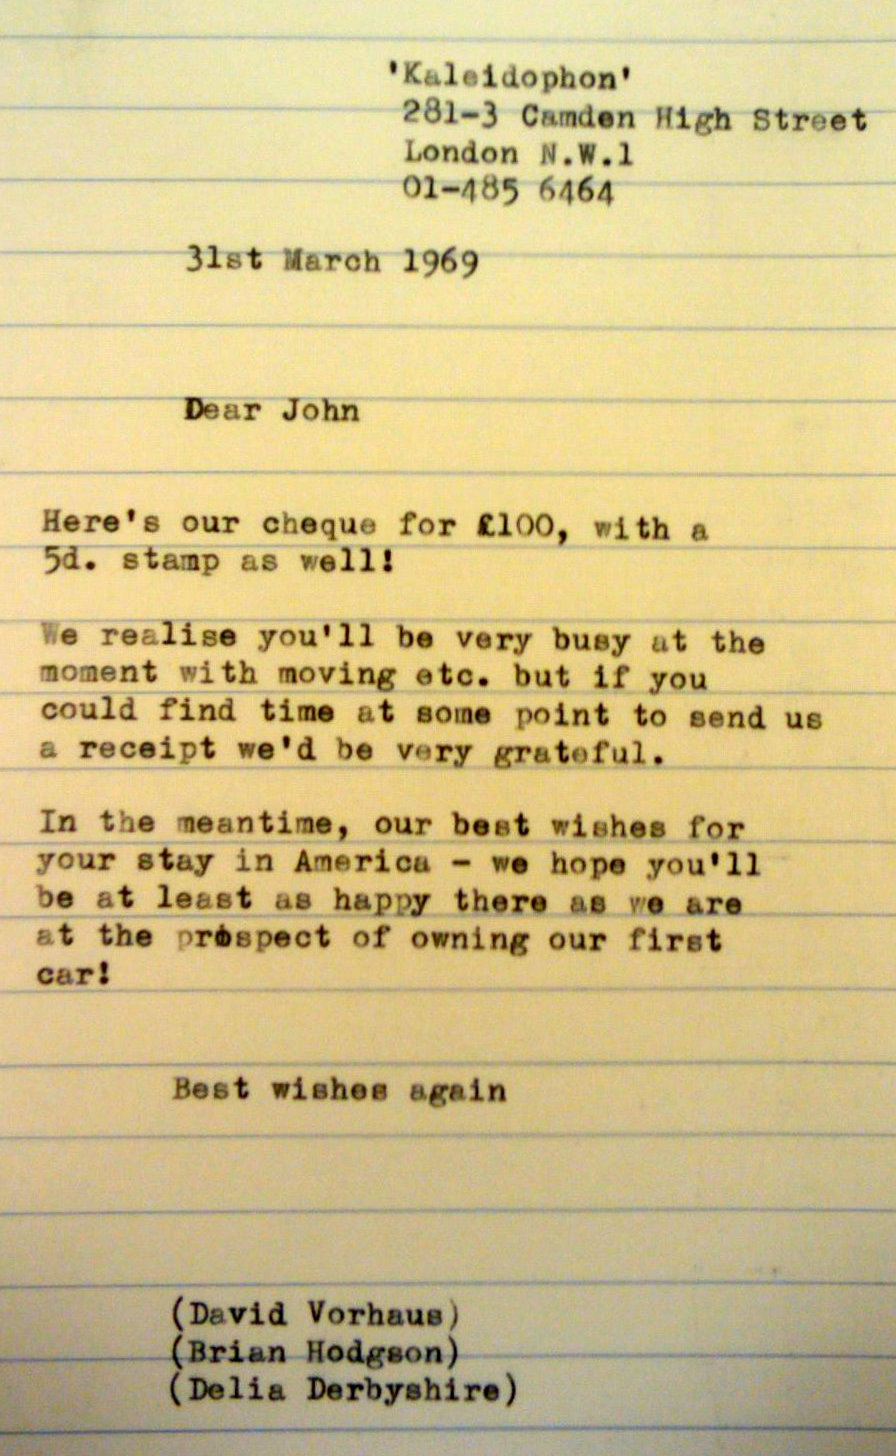 'Kaleidophon'
281-3 Camden High Street
London N.W.1
01-485 6464
31st March 1969
Dear John
Here's our cheque for £100, with a
5d. stamp as well!
We realise you'll be very busy at the
moment with moving etc. but if you
could find time at some point to send us
a receipt we'd be very grateful.
In the meantime, our best wishes for
your stay in America - we hope you'll
be at least as happy there as we are
at the prospect of owning our first
car!
Best wishes again
(David Vorhaus)
(Brian Hodgson)
(Delia Derbyshire)